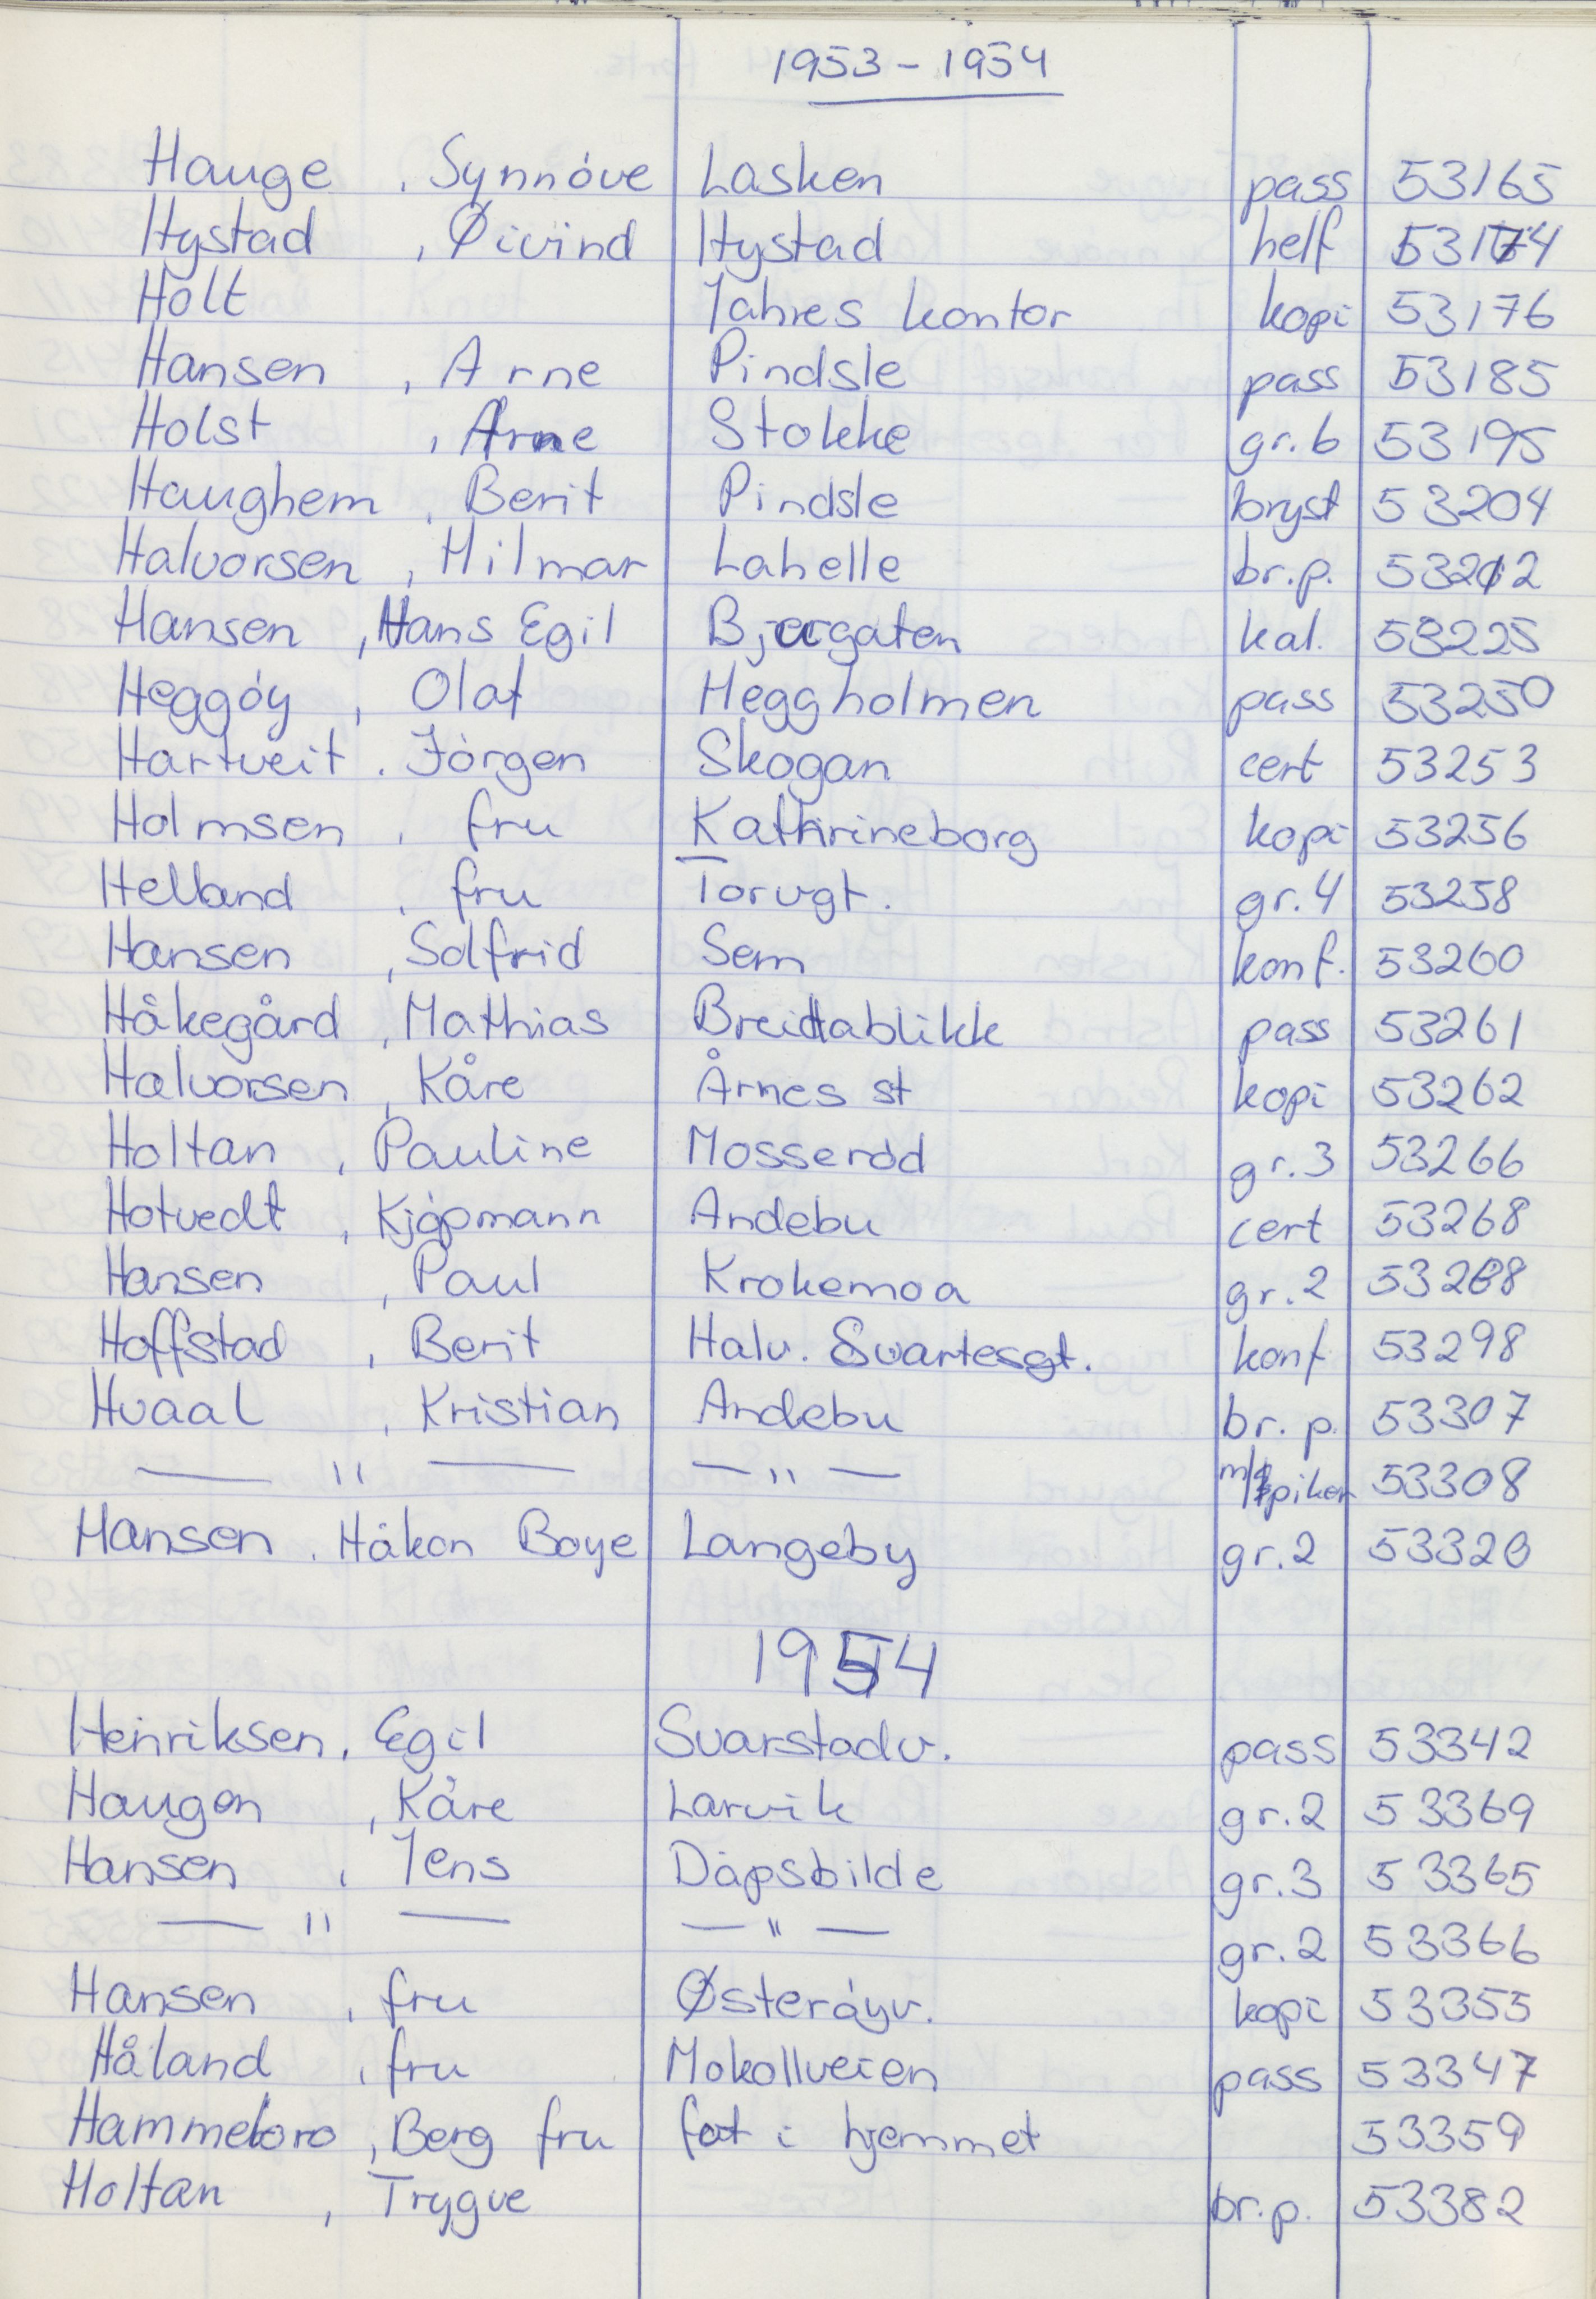 1953 - 1954
Hauge , Synnöve Lasken pass 53165
Hystad , Øivind Hystad helf 53174
Holt Jahres kontor kopi 53176
Hansen , Arne Pindsle pass 53185
Holst , Arne Stokke gr. 6 53195
Haughem , Berit Pindsle bryst 53204
Halvorsen , Hilmar Lahelle br. p. 53212
Hansen , Hans Egil Bjergaten kal. 53225
Heggöy , Olaf Heggholmen pass 53250
Hartveit . Jörgen Skogan cert 53253
Holmsen , fru Kathrineborg kopi 53256
Helland , fru Torvgt. gr. 4 53258
Hansen , Solfrid Sem konf. 53260
Håkegård , Mathias Breidtablikk pass 53261
Halvorsen , Kåre Årnes st kopi 53262
Holtan , Pauline Mosseröd gr. 3 53266
Hotvedt , Kjöpmann Andebu cert 53268
Hansen , Paul Krokemoa gr. 2 53288
Hoffstad , Berit Halv. Svartesgt. konf 53298
Hvaal , Kristian Andebu br. p. 53307
— " — — " — m/piker 53308
Hansen , Håkon Boye Langeby gr. 2 53320
1954
Henriksen , Egil Svarstadv. pass 53342
Haugen , Kåre Larvik gr. 2 53369
Hansen , Jens Dåpsbilde gr. 3 53365
— " — — " — gr. 2 53366
Hansen , fru Østeröyv. kopi 53355
Håland , fru Mokollveien pass 53347
Hammeloro , Berg fru fot i hjemmet 53359
Holtan , Trygve br. p. 53382